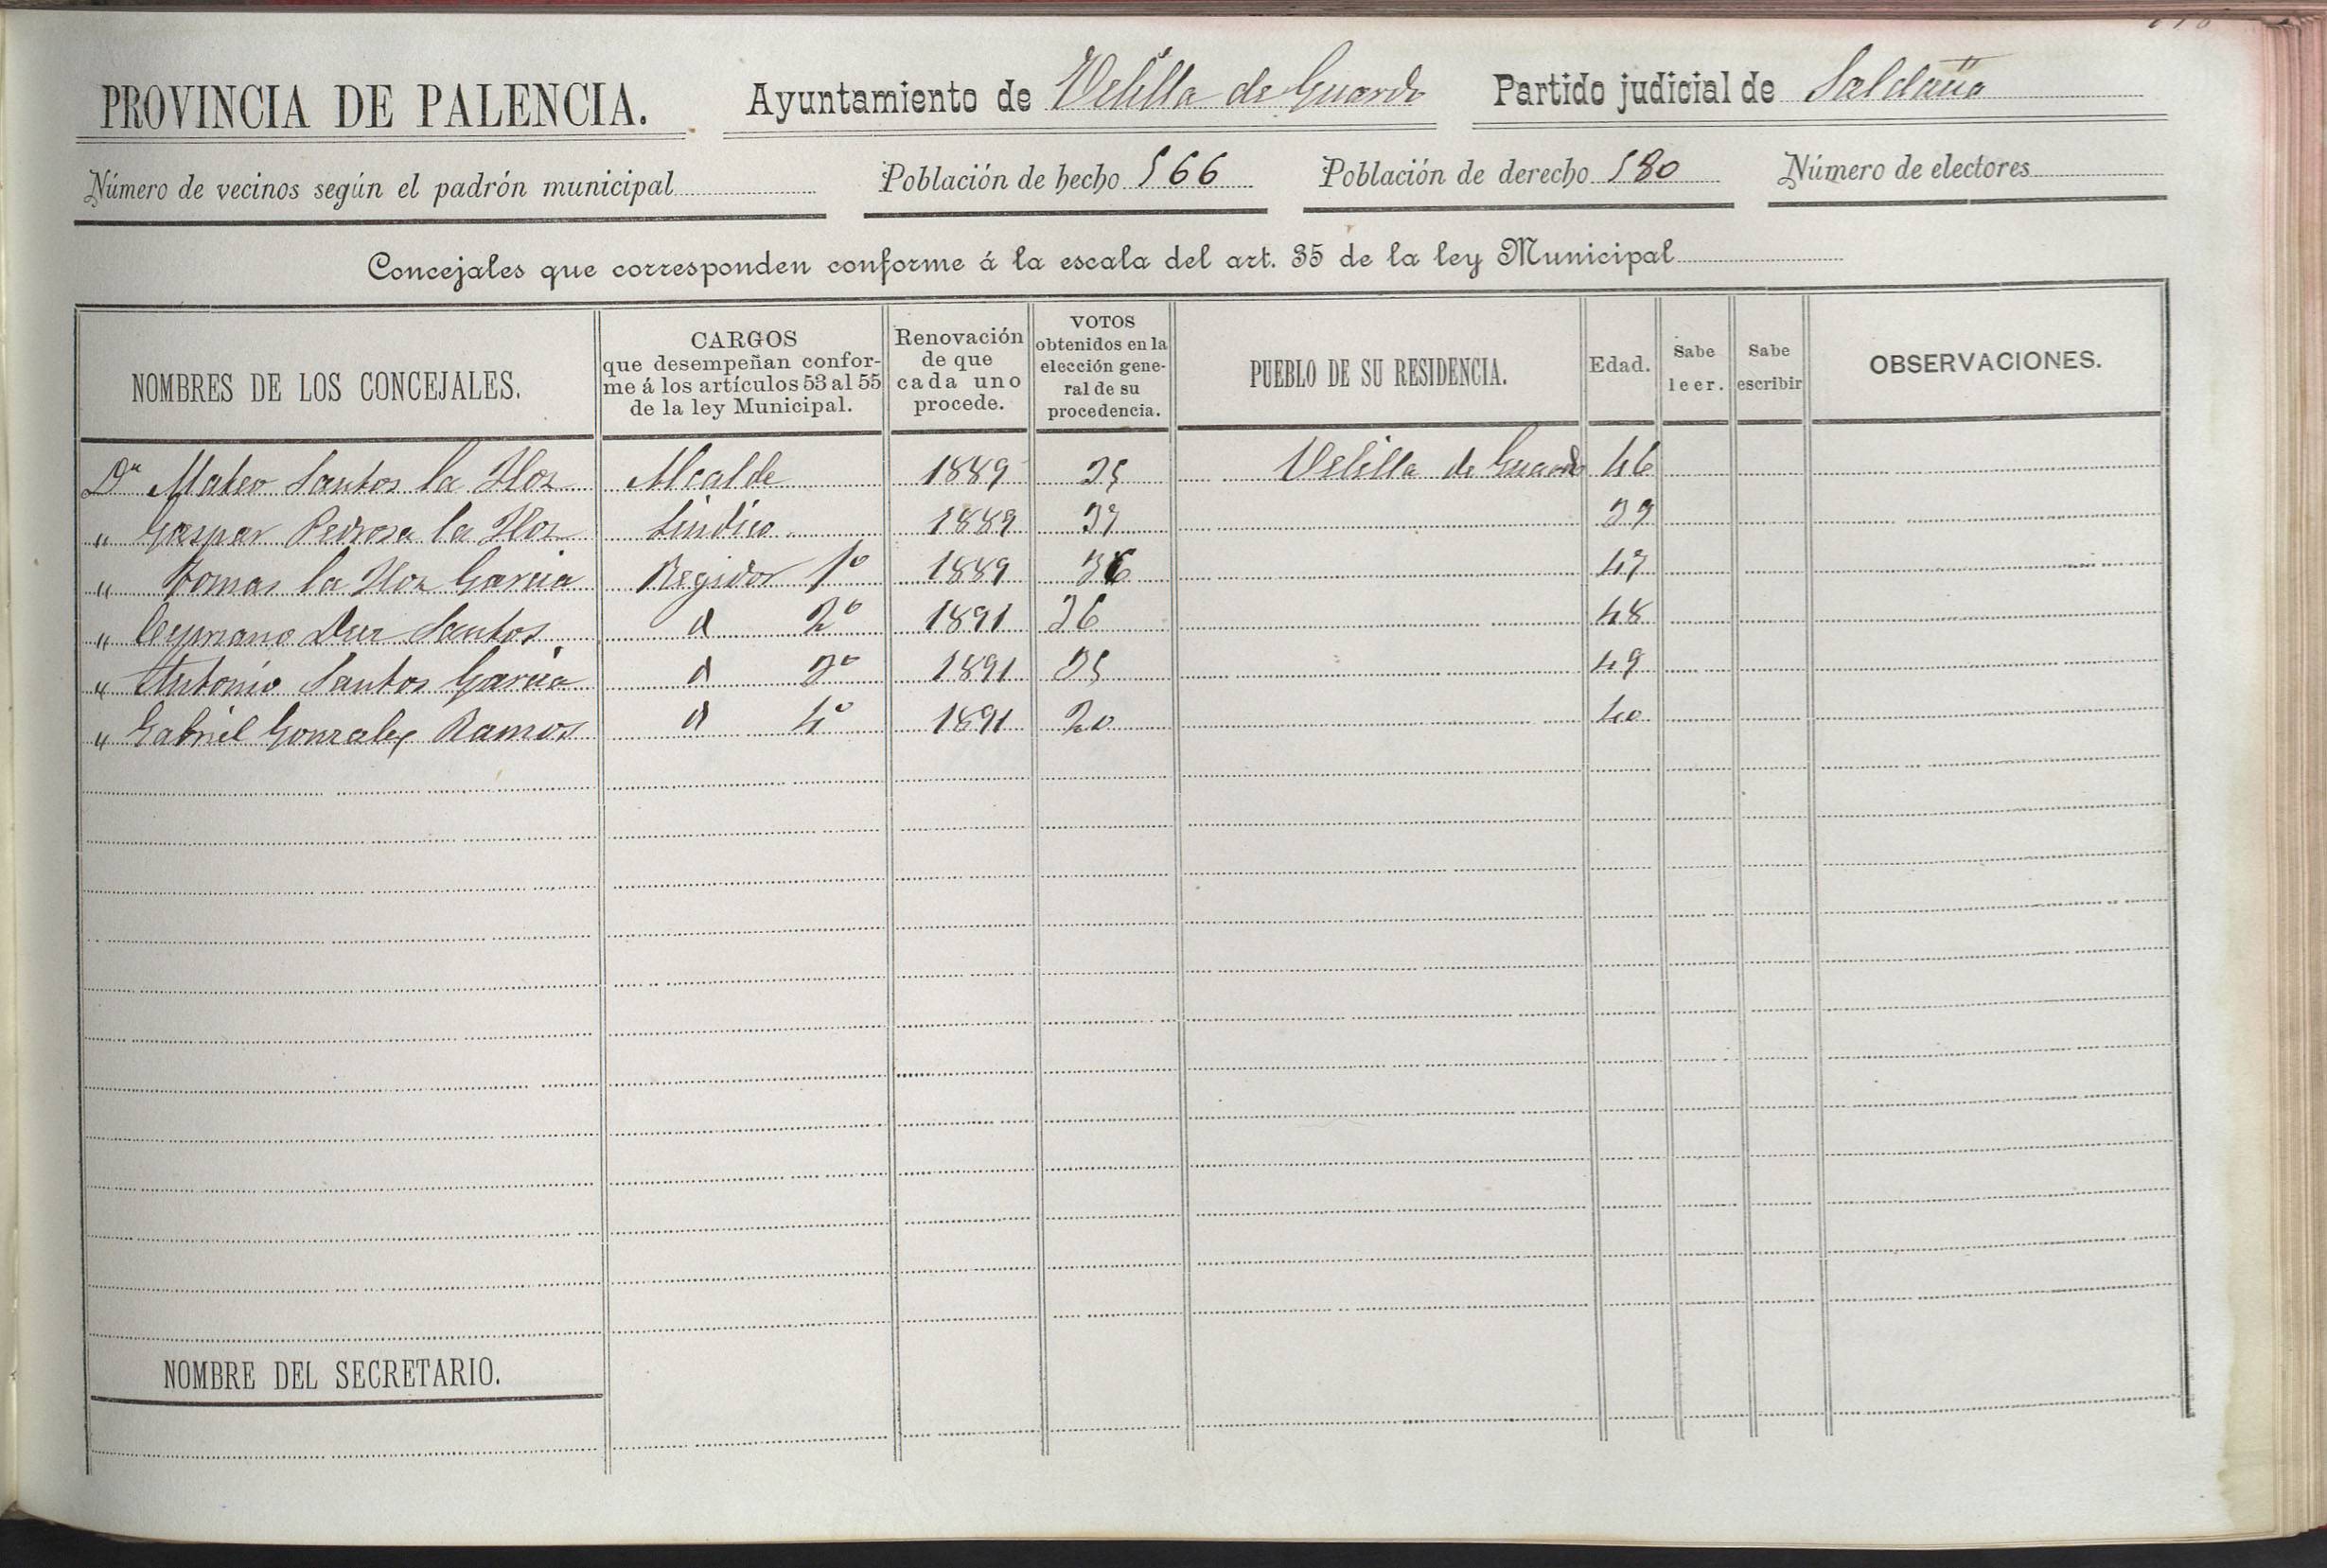 PROVINCIA DE PALENCIA. Ayuntamiento de Velilla de Guardo Partido judicial de Saldaña
Número de vecinos según el padrón municipal Población de hecho 566 Población de derecho 580 Número de electores
Concejales que corresponden conforme á la escala del art. 35 de la ley Municipal
NOMBRES DE LOS CONCEJALES.
CARGOS
que desempeñan confor-
me á los artículos 53 al 55
de la ley Municipal.
Renovación
de que
cada uno
procede.
VOTOS
obtenidos en la
elección gene-
ral de su
procedencia.
PUEBLO DE SU RESIDENCIA.
Edad.
Sabe
leer.
Sabe
escribir
OBSERVACIONES.
Dn Mateo Santos la Hoz Alcalde 1889 35 Velilla de Guardo 46
" Gaspar Pedrosa la Hoz Sindico 1889 37 39
" Tomas la Hoz Garcia Regidor 1º 1889 36 47
" Cypriano Diez Santos d 2º 1891 36 48
" Antonio Santos Garcia d 3º 1891 35 49
" Gabriel Gonzalez Ramos d 4º 1891 20 40
NOMBRE DEL SECRETARIO.